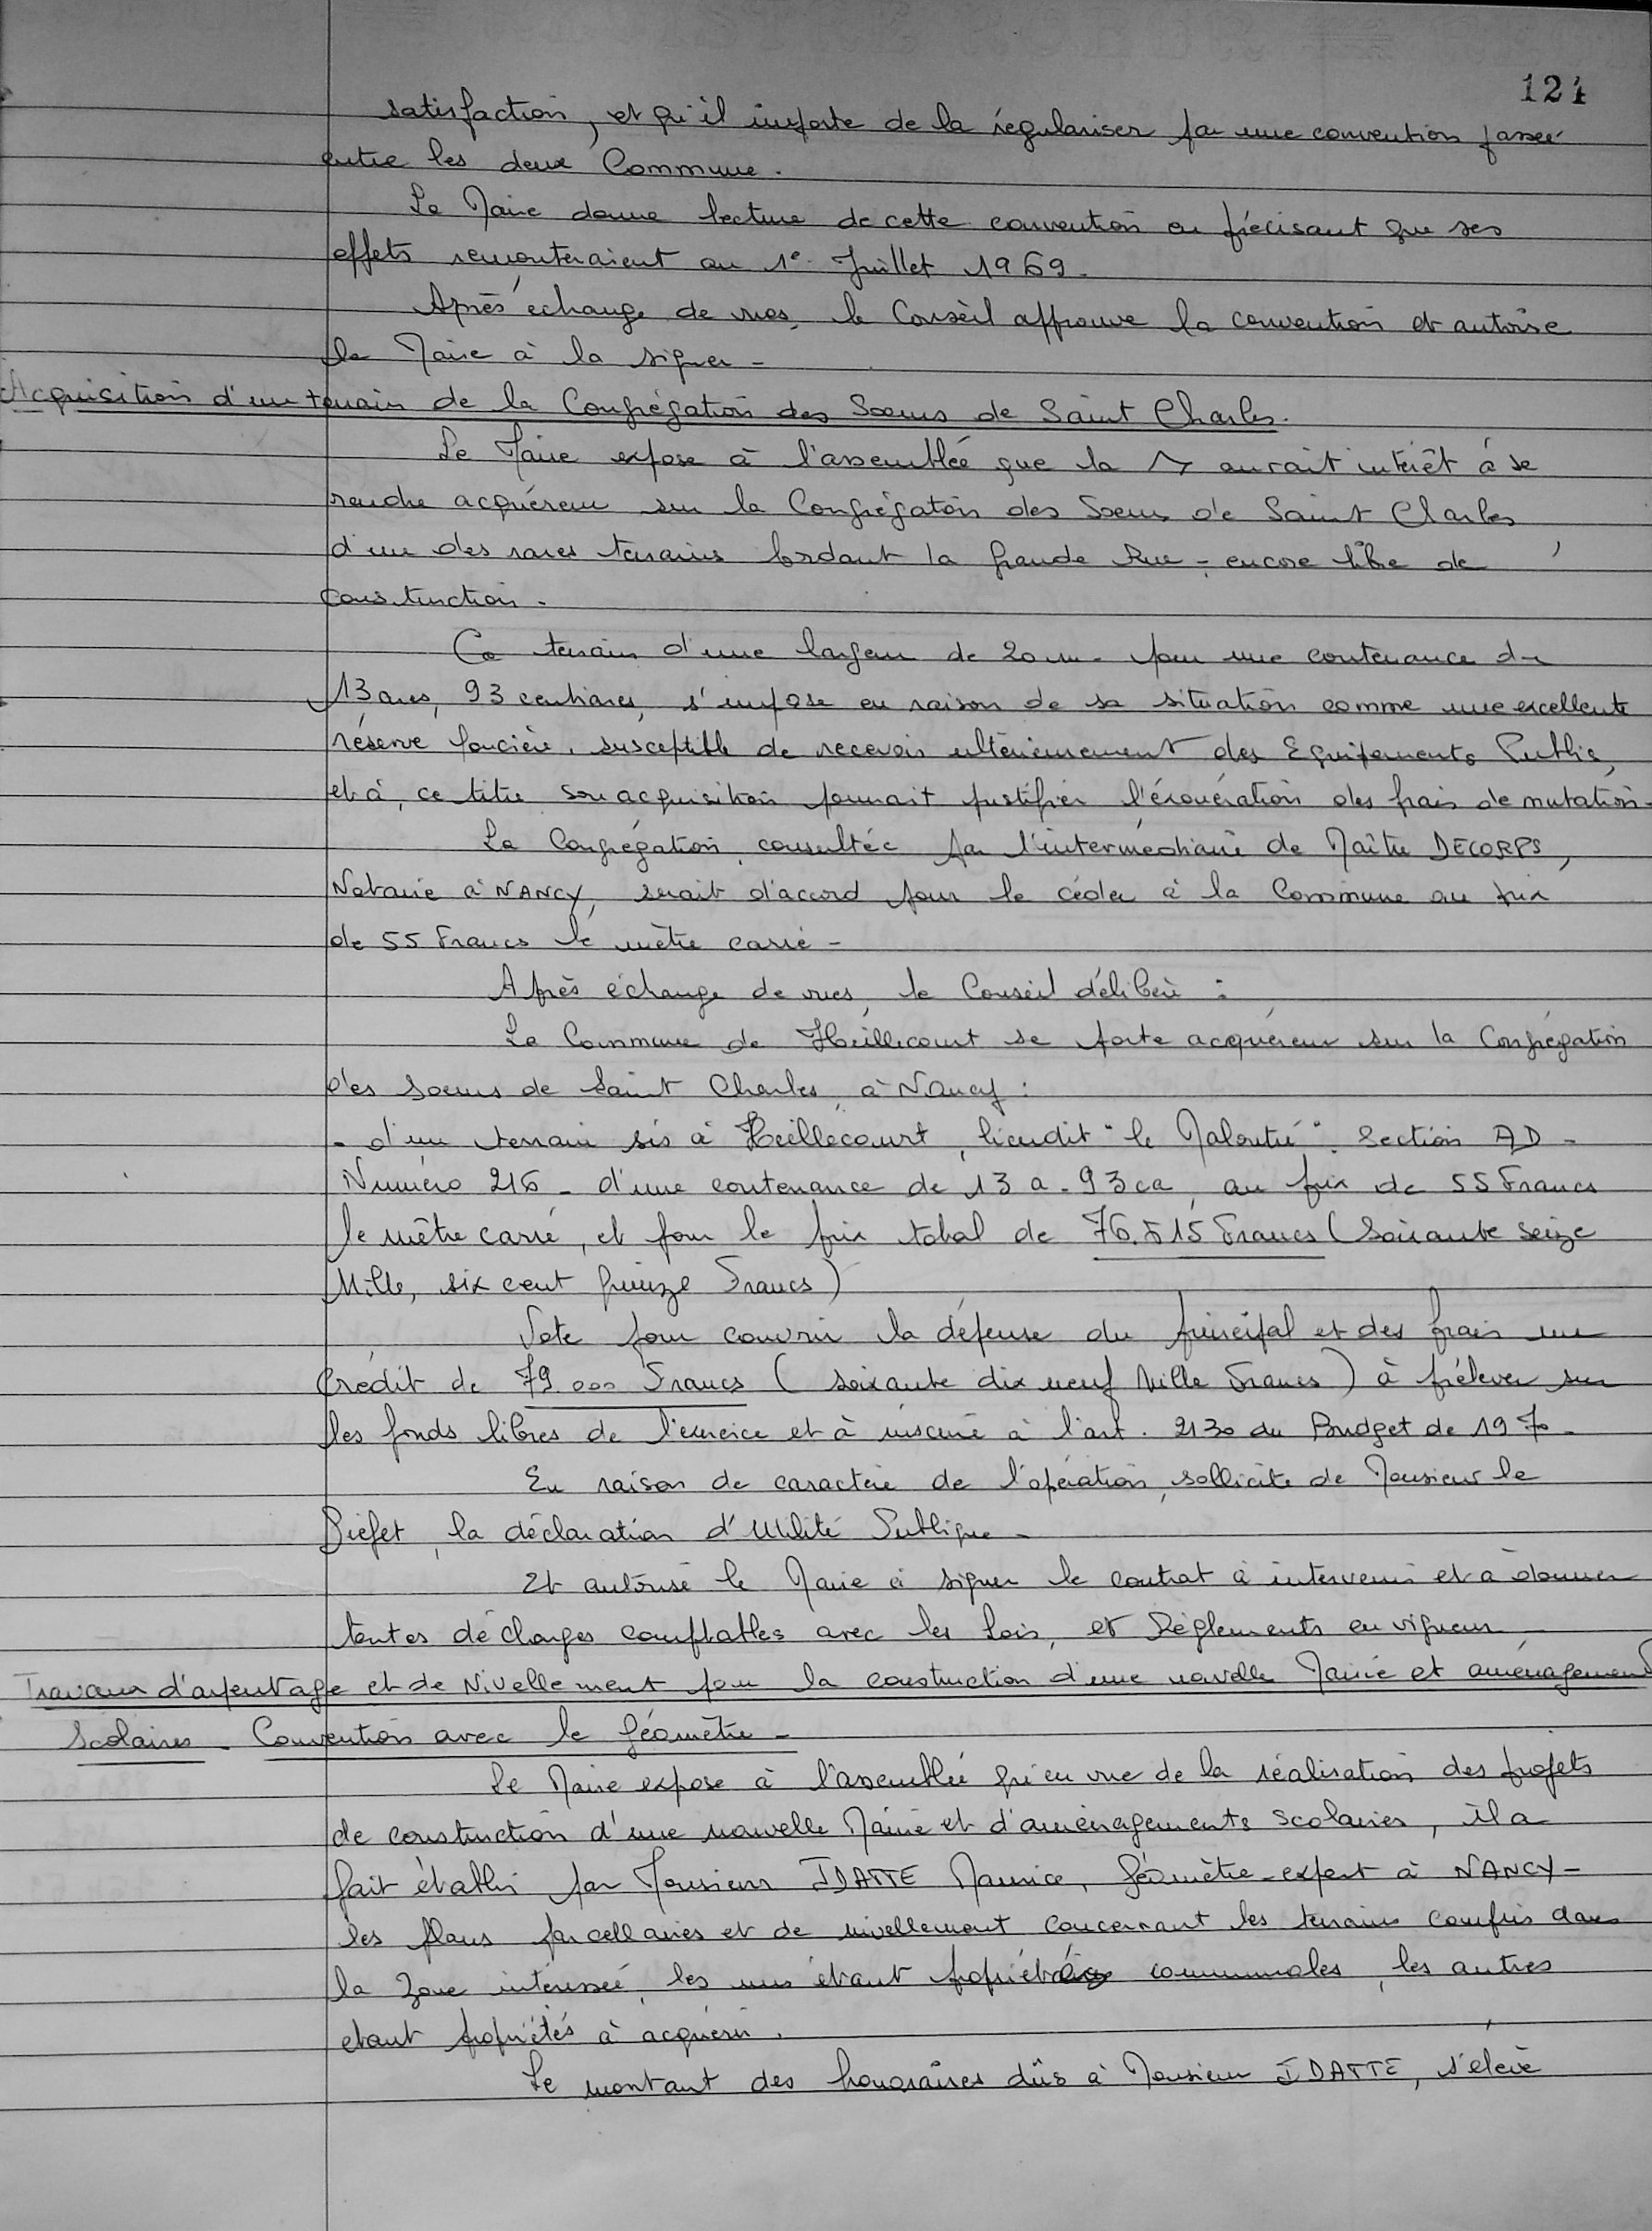 121
satisfaction, et qu'il importe de la régulariser par une convention passée
entre les deux Commune.
Le Maire donne lecture de cette convention en précisant que ses
effets remonteraient au 1e Juillet 1969.
Après échange de vues, le Conseil approuve la convention et autorise
le Maire à la signer -
Acquisition d'un terrain de la Congrégation des Soeurs de Saint Charles.
Le Maire expose à l'assemblée que la aurait intérêt à se
rendre acquéreur sur la Congrégation des Soeurs de Saint Charles,
d'un des rares terrains bordant la grande Rue - encore libre de
construction.
Ce terrain d'une largeur de 20 m. pour une contenance de
13 ares, 93 centiares, s'impose en raison de sa situation comme une excellente
réserve foncière, susceptible de recevoir ultérieurement des Equipements Publis,
et à, ce titre son acquisition pourrait justifier l'éxonération des frais de mutation.
La Congrégation, consultée par l'intermédiaire de Maître DECORPS,
Notaire à NANCY, serait d'accord pour le céder à la Commune au prix
de 55 Francs le mètre carré -
Après échange de vues, le Conseil délibère :
La Commune de Heillecourt se porte acquéreur sur la Congrégation
des soeurs de Saint Charles, à Nancy :
- d'un terrain sis à Heillecourt, lieudit "le Maloutré". Section AD -
Numéro 216 - d'une contenance de 13 a - 93 ca, au prix de 55 Francs
le mètre carré, et pour le prix total de 76.615 Francs (Soixante seize
Mille, six cent quinze Francs)
Vote pour couvrir la dépense du principal et des frais un
Crédit de 79.000 Francs ( soixante dix neuf Mille Francs ) à prélever sur
les fonds libres de l'exercice et à inscrire à l'art. 2130 du Budget de 1970.
En raison de caractère de l'opération, sollicite de Monsieur le
Préfet, la déclaration d'Utilité Publique -
Et autorise le Maire à signer le contrat à intervenir et à donner
toutes décharges comptables avec les Lois, et Règlements en vigueur.
Travaux d'arpentage et de Nivellement pour la construction d'une nouvelle Mairie et aménagement
Scolaires - Convention avec le géomètre -
Le Maire expose à l'assemblée qu'en vue de la réalisation des projets
de construction d'une nouvelle Mairie et d'aménagements scolaires, il a
fait établir par Monsieur IDATTE Maurice, géomètre-expert à NANCY -
les plans parcellaires et de nivellement concernant les terrains compris dans
la zone intéressée, les uns étant propriétés communales, les autres
étant propriétés à acquérir.
Le montant des honoraires dûs à Monsieur IDATTE, s'élève